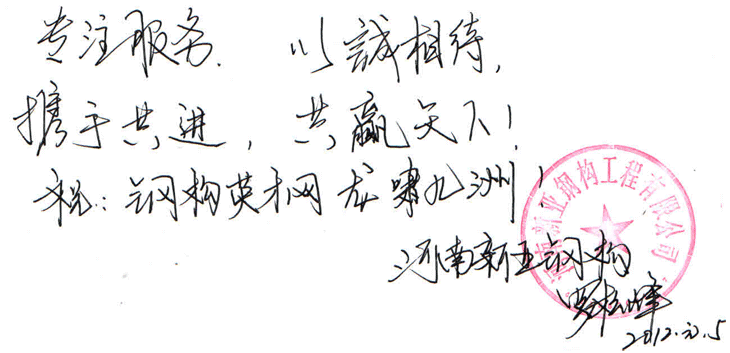 专注服务, 以誠相待,
携手共进, 共赢天下!
祝: 钢构英才网 龙啸九洲!
河南新亚钢构工程有限公司
河南新亚钢构
2012.元.5